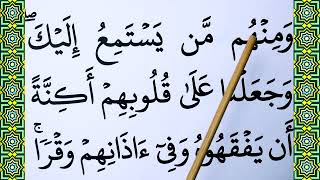 وَمِنْهُم مَّن يَسْتَمِعُ إِلَيْكَ ۖ
وَجَعَلْنَا عَلَىٰ قُلُوبِهِمْ أَكِنَّةً
أَن يَفْقَهُوهُ وَفِىٓ ءَاذَانِهِمْ وَقْرًا ۚ